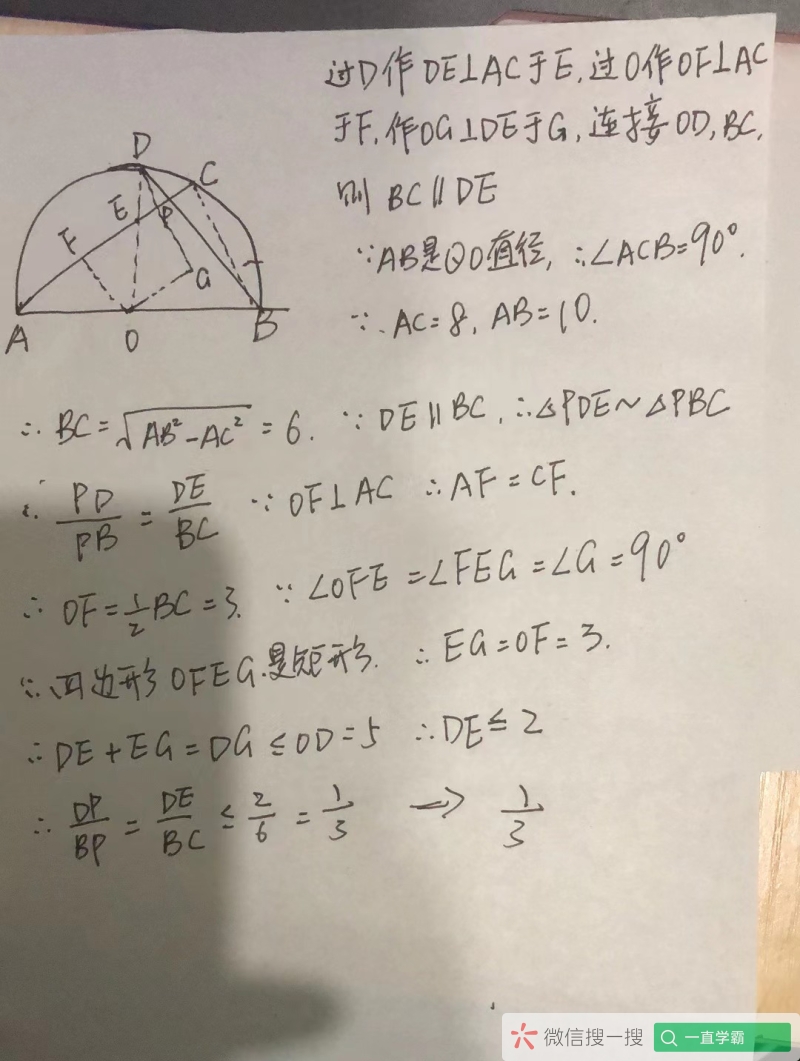 过D作DE⊥AC于E,过O作OF⊥AC
于F,作OG⊥DE于G,连接OD,BC,
则 BC∥DE
∵AB是⊙O直径,∴∠ACB=90°.
∵AC=8, AB=10.
D
C
E
P
F
G
A
O
B
∴BC=√AB²-AC²=6. ∵DE∥BC, ∴△PDE∼△PBC
∴PD/PB=DE/BC ∵OF⊥AC ∴AF=CF.
∴OF=1/2BC=3. ∵∠OFE=∠FEG=∠G=90°
∴四边形OFEG是矩形. ∴EG=OF=3.
∴DE+EG=DG≤OD=5 ∴DE≤2
∴DP/BP=DE/BC≤2/6=1/3 → 1/3
微信搜一搜 一直学霸